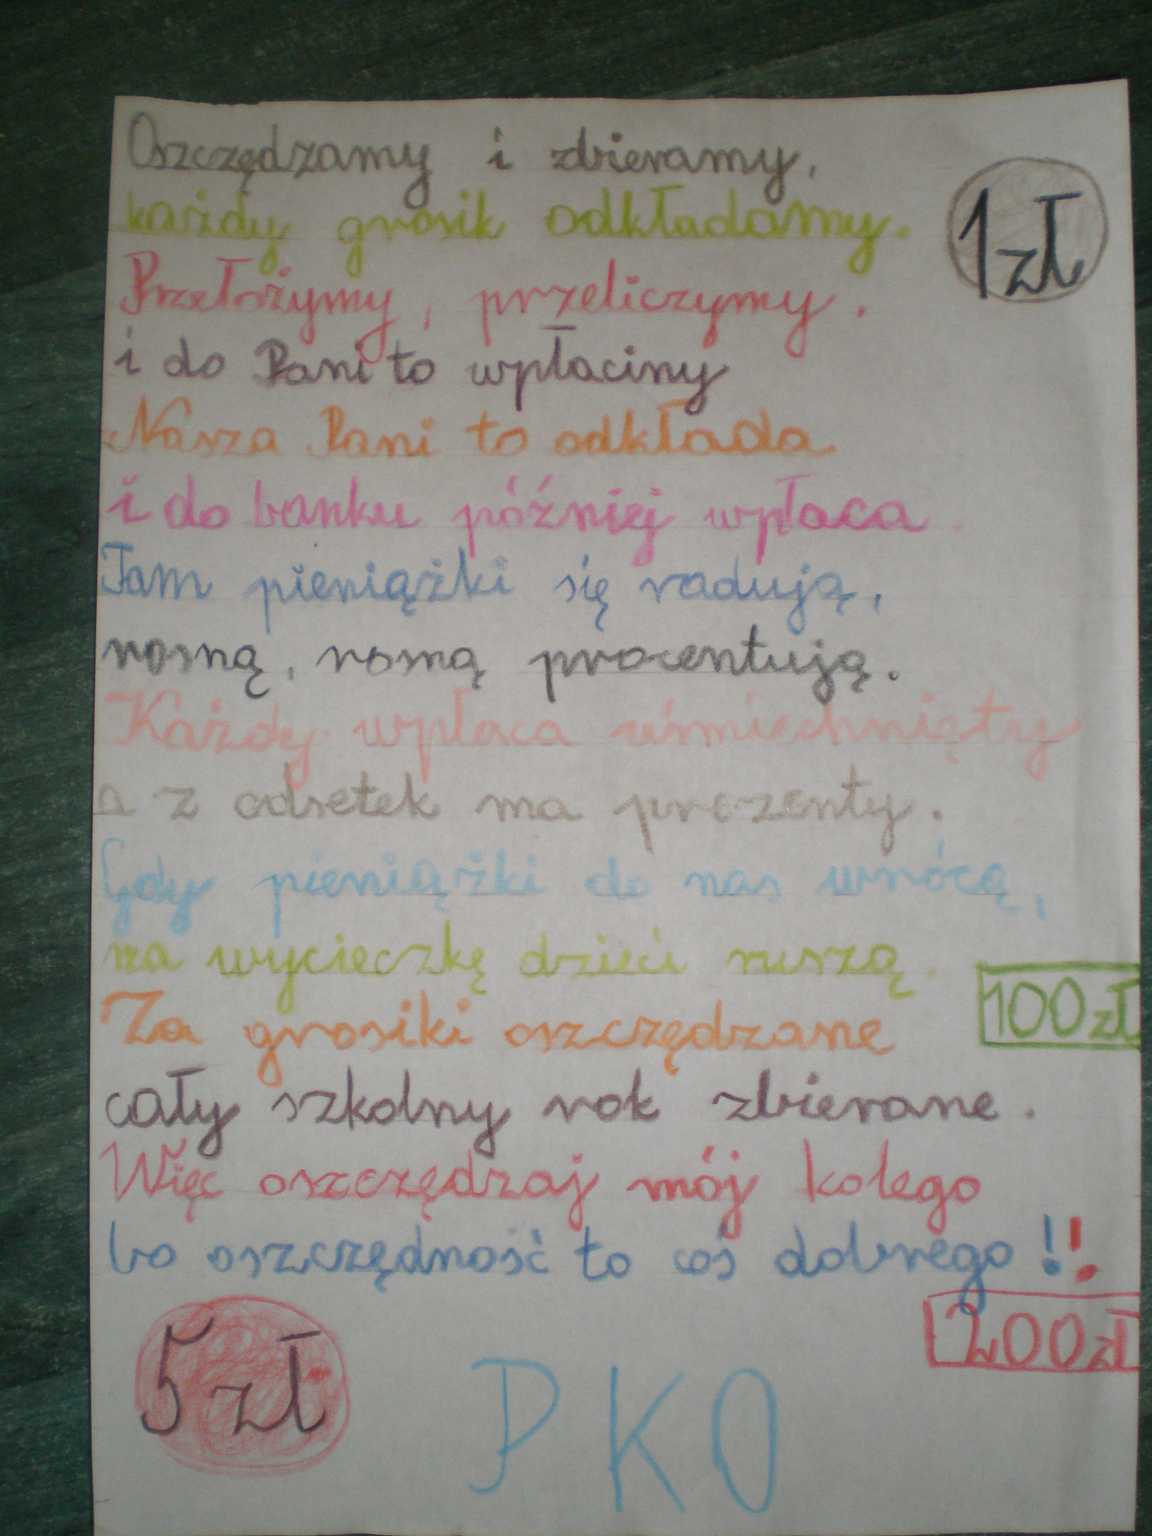 Oszczędzamy i zbieramy,
każdy grosik odkładamy.
Przełożymy, przeliczymy.
i do Pani to wpłacimy
Nasza Pani to odkłada
i do banku później wpłaca.
Tam pieniążki się radują,
rosną, rosną procentują.
Każdy wpłaca uśmiechnięty
a z odsetek ma prezenty.
Gdy pieniążki do nas wrócą,
na wycieczkę dzieci ruszą.
Za grosiki oszczędzane
cały szkolny rok zbierane.
Więc oszczędzaj mój kolego
bo oszczędność to coś dobrego!!
1zł
100zł
200zł
5zł
PKO